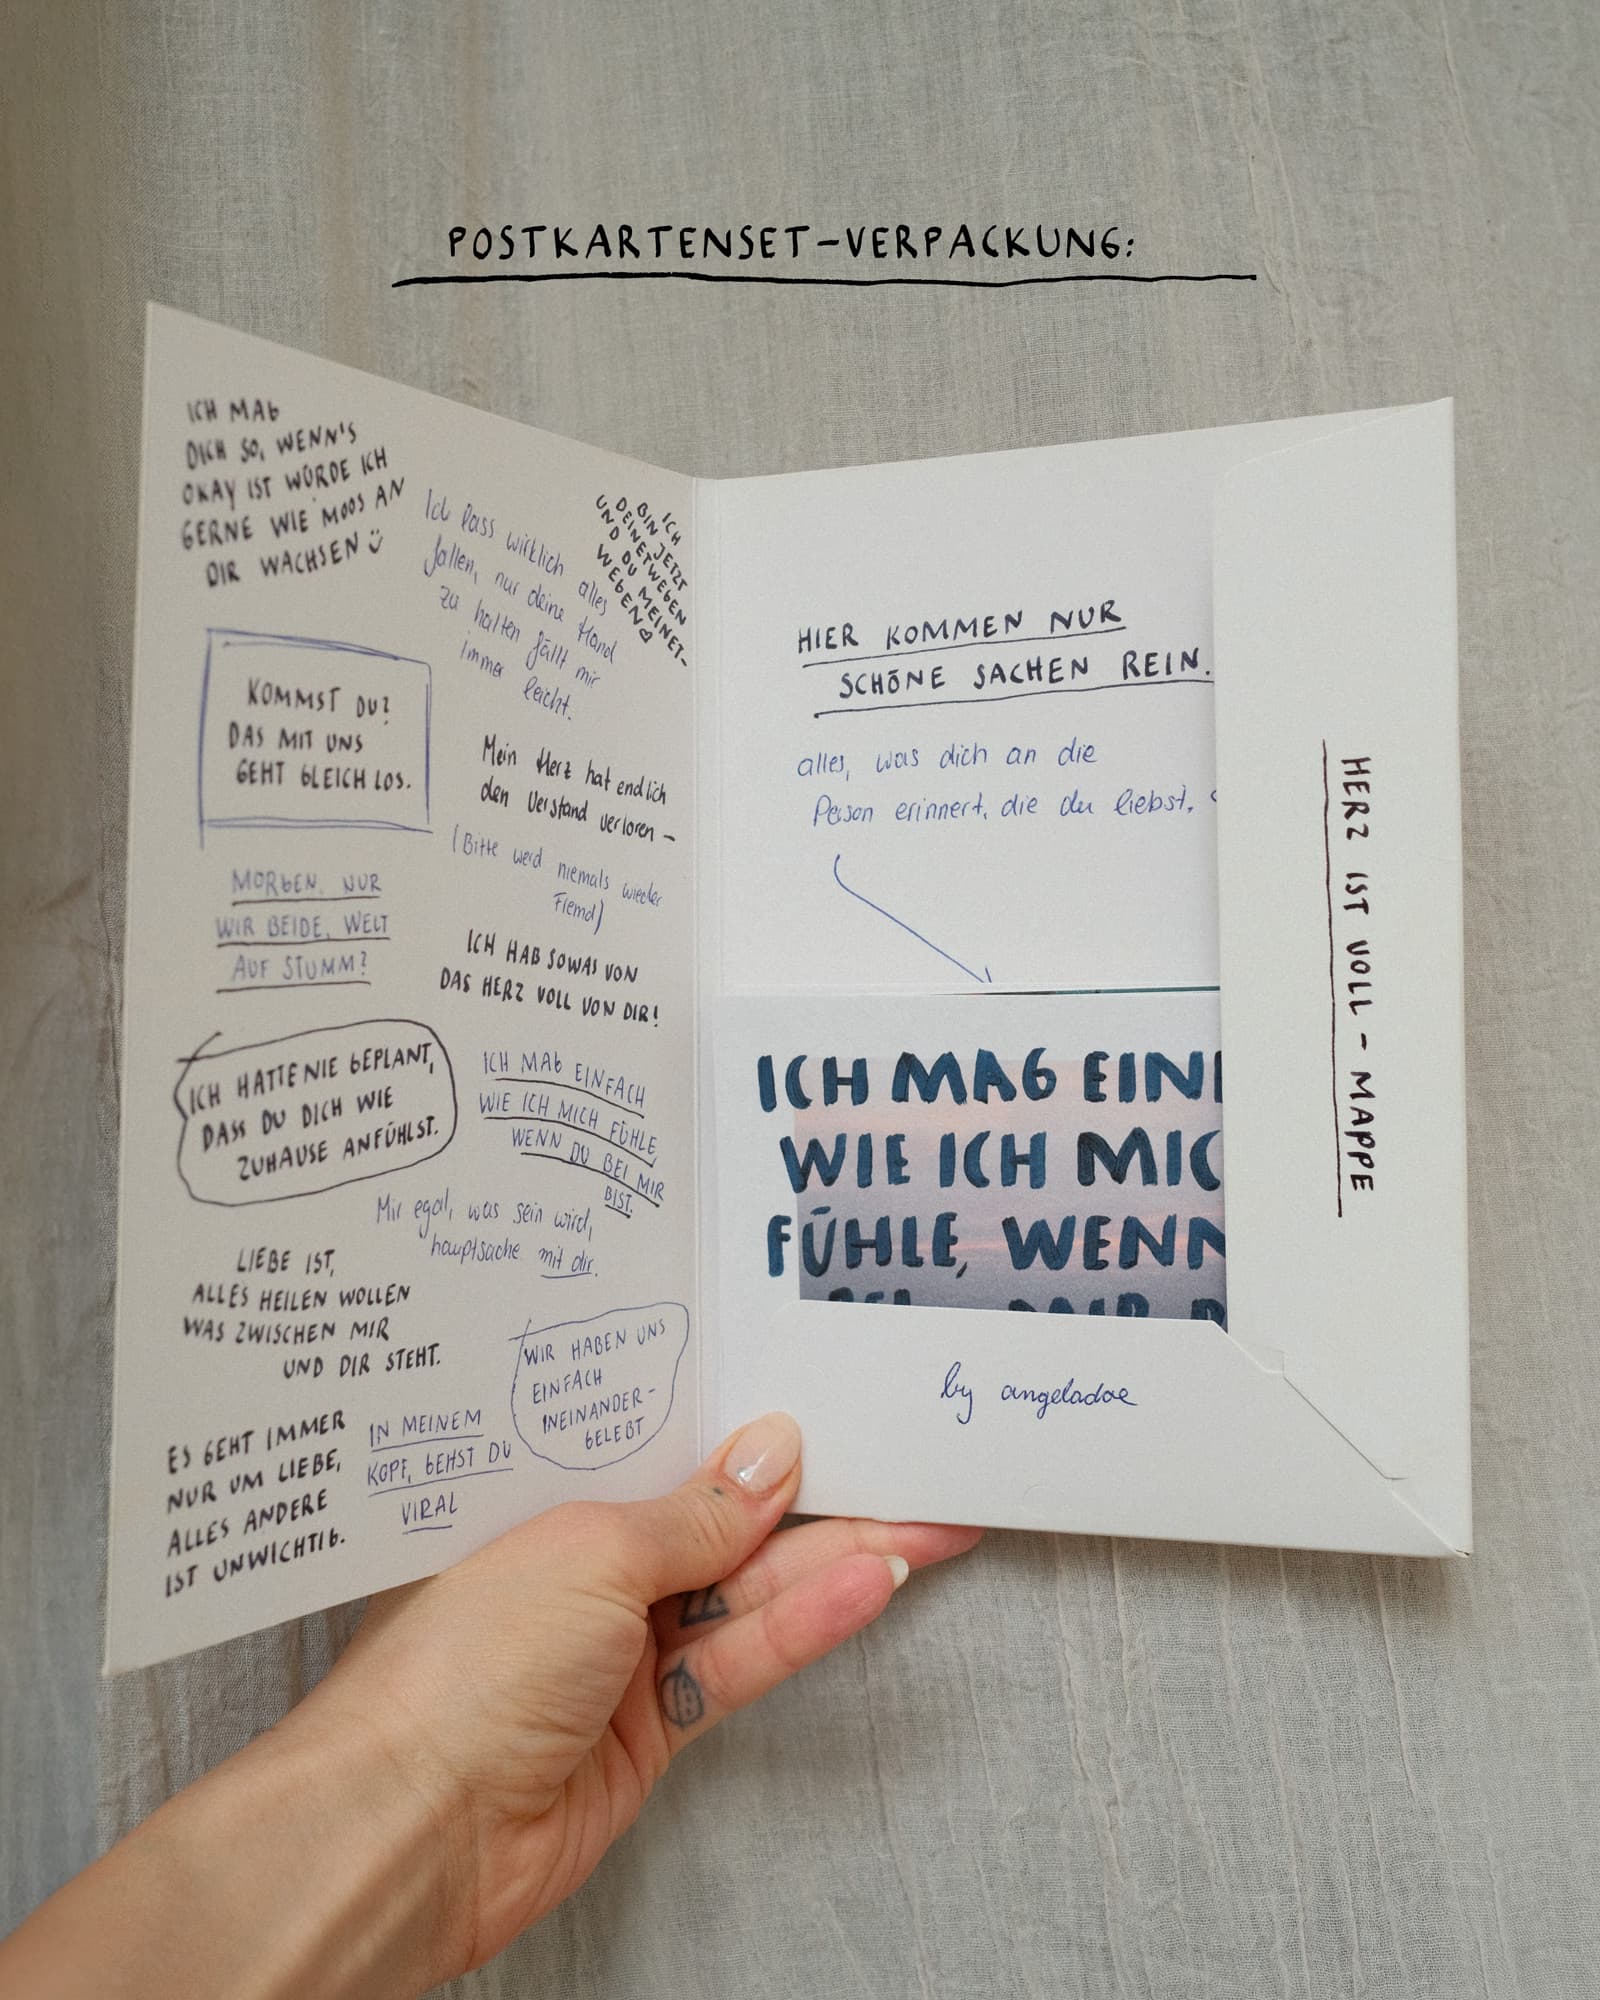 POSTKARTENSET-VERPACKUNG:
ICH MAG
DICH SO, WENN'S
OKAY IST WÜRDE ICH
GERNE WIE MOOS AN
DIR WACHSEN
Ich lass wirklich alles
fallen, nur deine Hand
zu halten fällt mir
immer leicht.
ICH
BIN JETZT
DEINETWEGEN
UND DU MEINET-
WEGEN
KOMMST DU?
DAS MIT UNS
GEHT GLEICH LOS.
Mein Herz hat endlich
den Verstand verloren –
(Bitte werd niemals wieder
Fremd)
MORGEN. NUR
WIR BEIDE. WELT
AUF STUMM?
ICH HAB SOWAS VON
DAS HERZ VOLL VON DIR!
ICH HATTE NIE GEPLANT,
DASS DU DICH WIE
ZUHAUSE ANFÜHLST.
ICH MAG EINFACH
WIE ICH MICH FÜHLE,
WENN DU BEI MIR
BIST.
Mir egal, was sein wird,
hauptsache mit dir.
LIEBE IST,
ALLES HEILEN WOLLEN
WAS ZWISCHEN MIR
UND DIR STEHT.
WIR HABEN UNS
EINFACH
INEINANDER-
GELEBT
ES GEHT IMMER
NUR UM LIEBE,
ALLES ANDERE
IST UNWICHTIG.
IN MEINEM
KOPF, GEHST DU
VIRAL
HIER KOMMEN NUR
SCHÖNE SACHEN REIN.
alles, was dich an die
Person erinnert, die du liebst.
ICH MAG EIN
WIE ICH MIC
FÜHLE, WENN
by angeladoe
HERZ IST VOLL - MAPPE